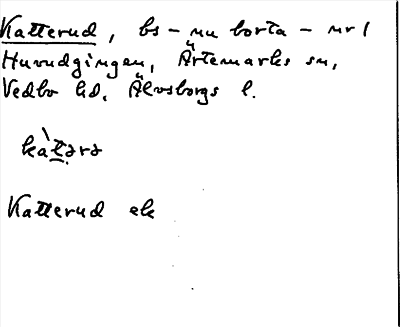 Katterud, bs - nu borta - nr 1
Huvudgingen, Ärtemarks sn,
Vedbo hd, Älvsborgs l.
kàt̠ərə
Katterud ek